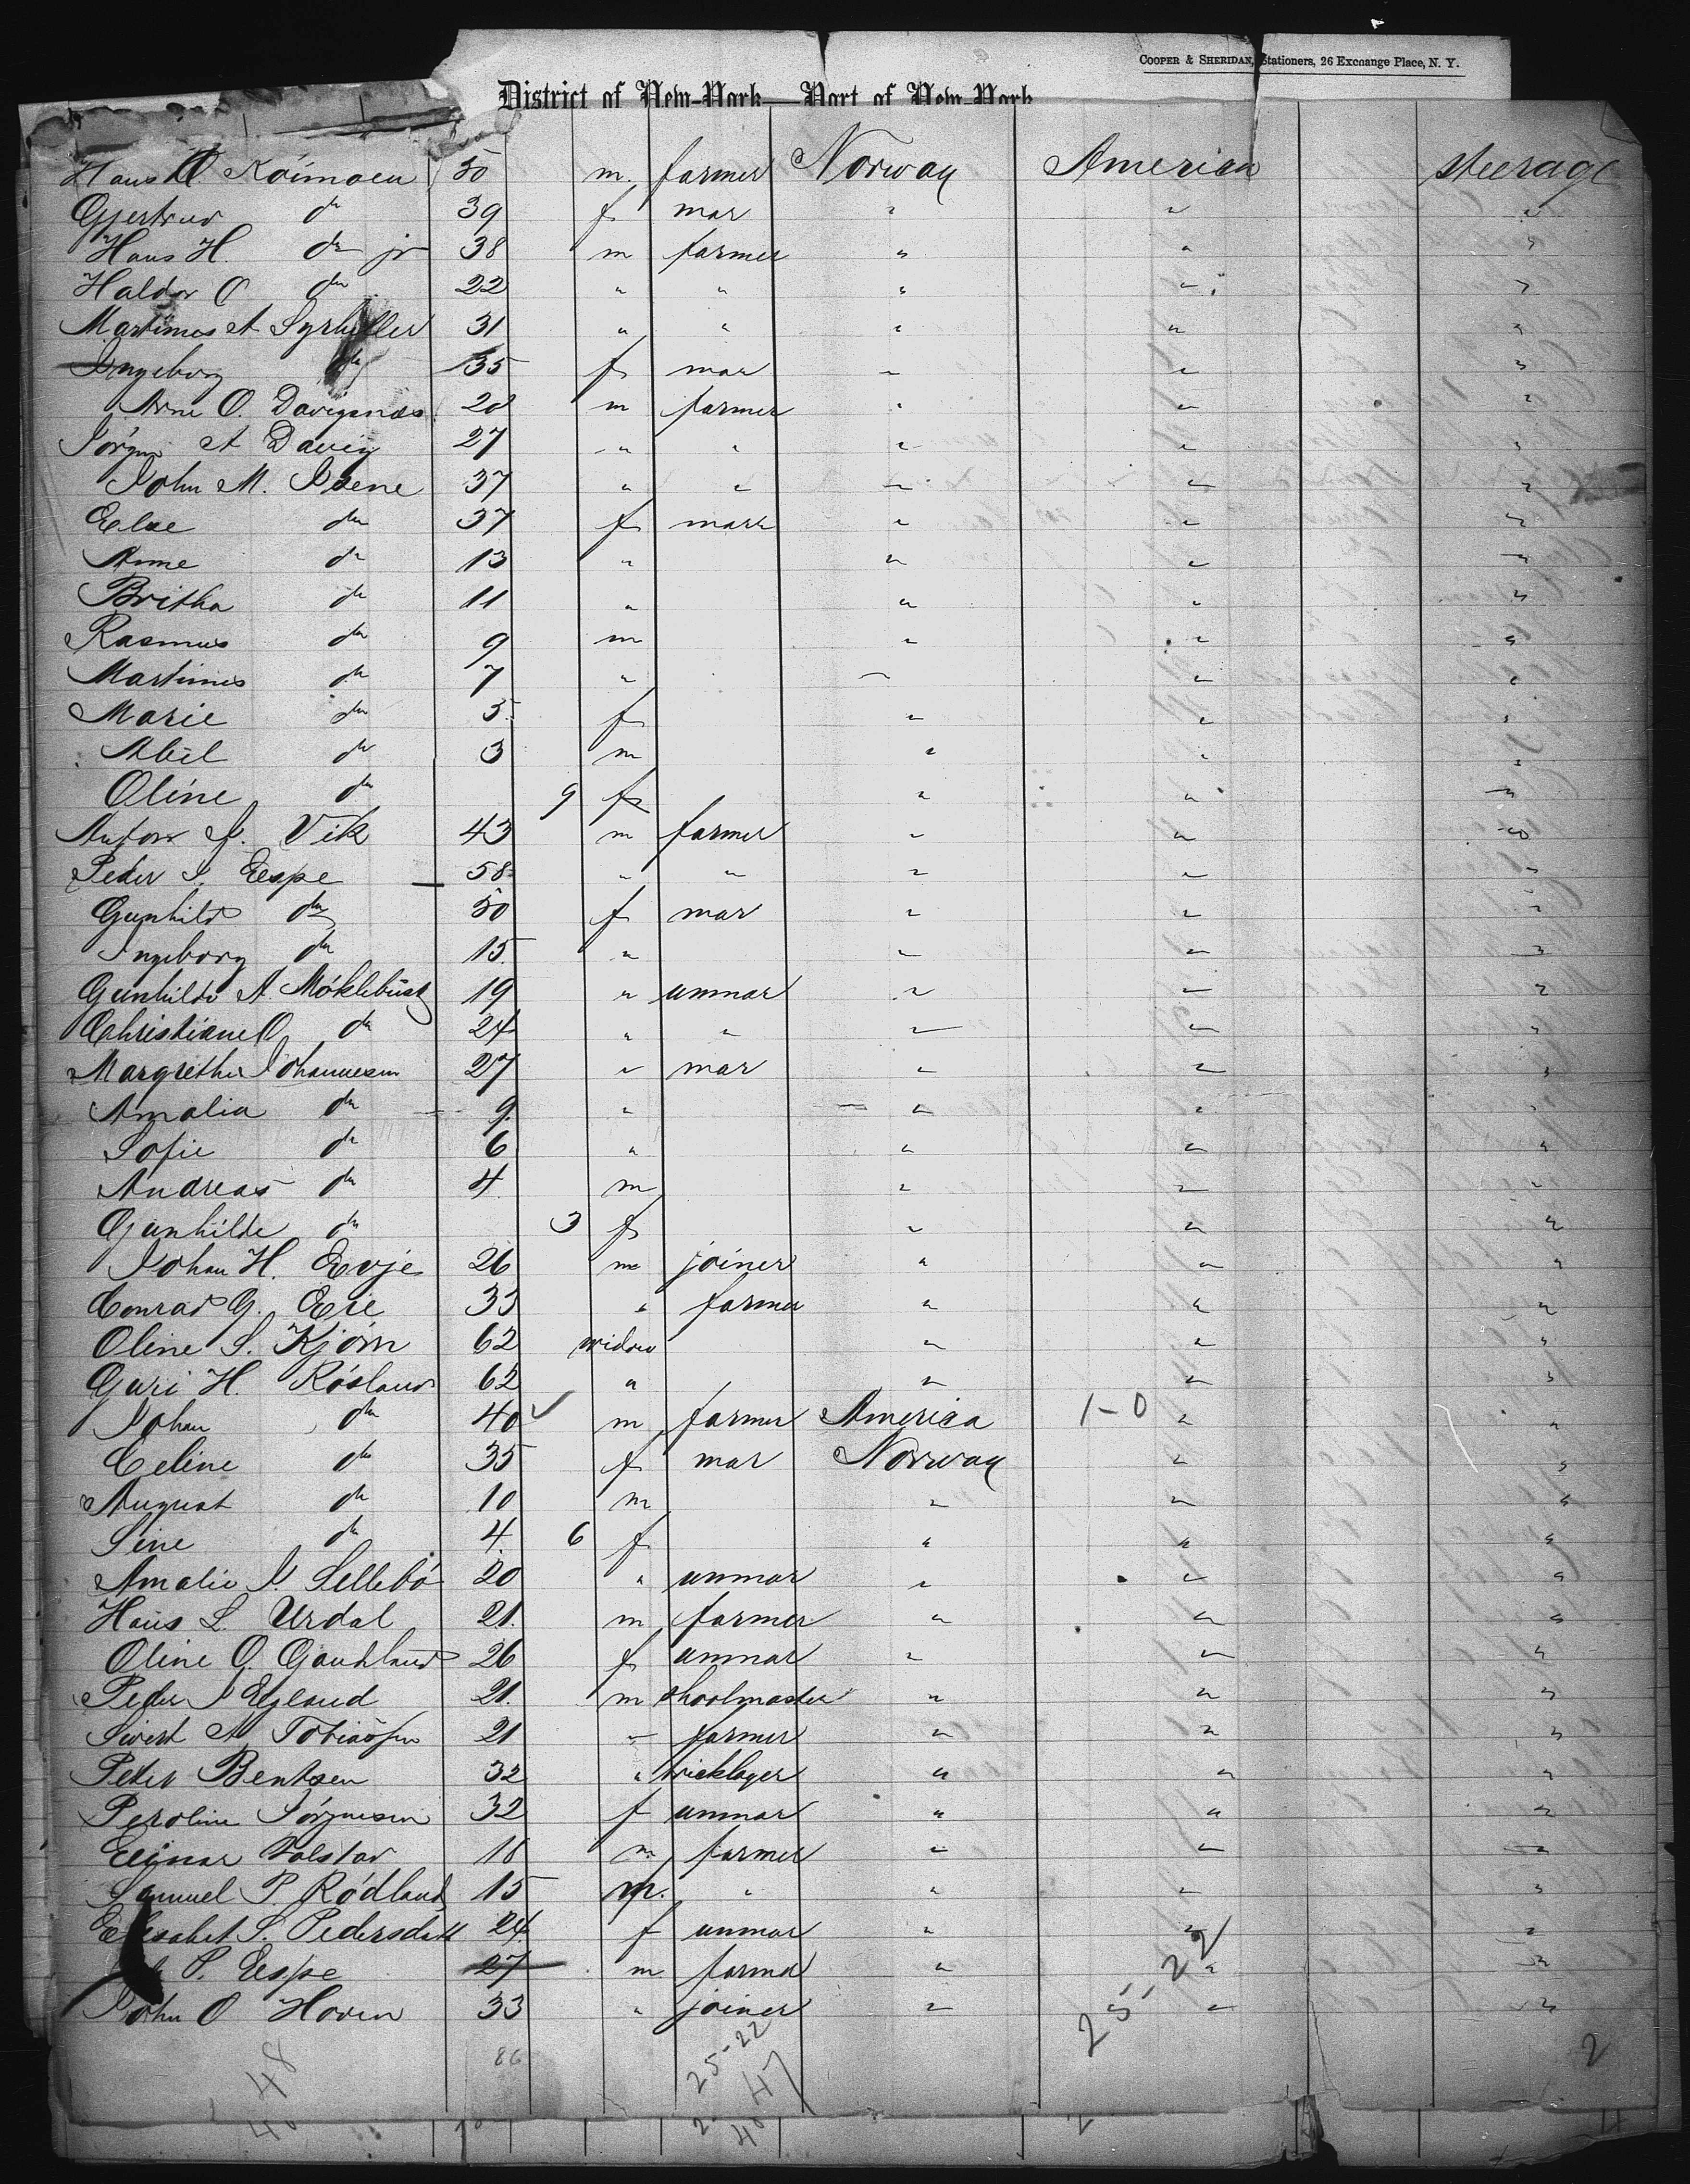 COOPER & SHERIDAN, Stationers, 26 Exchange Place, N. Y.
District of New-York—Port of New-York
Hans O. Köimoen 50 m. farmer Norway America steerage
Gjertrud do 39 f mar " " "
Hans H. do jr 38 m farmer " " "
Haldor O do 22 " " " " "
Martinus A 31 " " " " "
Ingeborg do 35 f mar " " "
Arne O. Davignes 20 m farmer " " "
Jörgen A Davig 27 " " " " "
John M. 37 " " " " "
Else do 37 f mar " " "
Anne do 13 " " " "
Britha do 11 " " " "
Rasmus do 9 m " " "
Martinus do 7 " " " "
Marie do 5 f " " "
Abel do 3 m " " "
Oline do 9 f " " "
Anton J. Vik 43 m farmer " " "
Peder I. Eespe 58 " " " " "
Gunhild do 50 f mar " " "
Ingeborg do 15 " " " "
Gunhilde A. Möklebust 19 " unmar " " "
Christiane O do 24 " " " " "
Margrethe Johannesen 27 " mar " " "
Amalia do 9 " " " "
Sofie do 6 " " " "
Andreas do 4 m " " "
Gunhilde do 3 f " " "
Johan H. Evje 26 m joiner " " "
Conrad G. Eie 33 " farmer " " "
Oline S. Kjörn 62 widow " " "
Guri H. Rösland 62 " " " "
Johan do 40 ✓ m farmer America 1-0 " "
Celine do 35 f mar Norway " "
August do 10 m " " "
Sine do 4 6 f " " "
Amalie J. Sellebö 20 " unmar " " "
Hans L. Urdal 21. m farmer " " "
Oline O. Gauhland 26 f unmar " " "
Peder J Egland 21. m shoolmaster " " "
Sivert M Tobiassen 21 " farmer " " "
Peter Bentsen 32 " bricklayer " " "
Peroline Jörgensen 32 f unmar " " "
Einar 18 m farmer " " "
Samuel P. Rödland 15 m. " " " "
Elisabet S. Pedersdatt 24 f unmar " " "
P. Eespe 27 m farmer " " "
John O Hoven 33 " joiner " " "
25-22
48 86 25-22 2
47